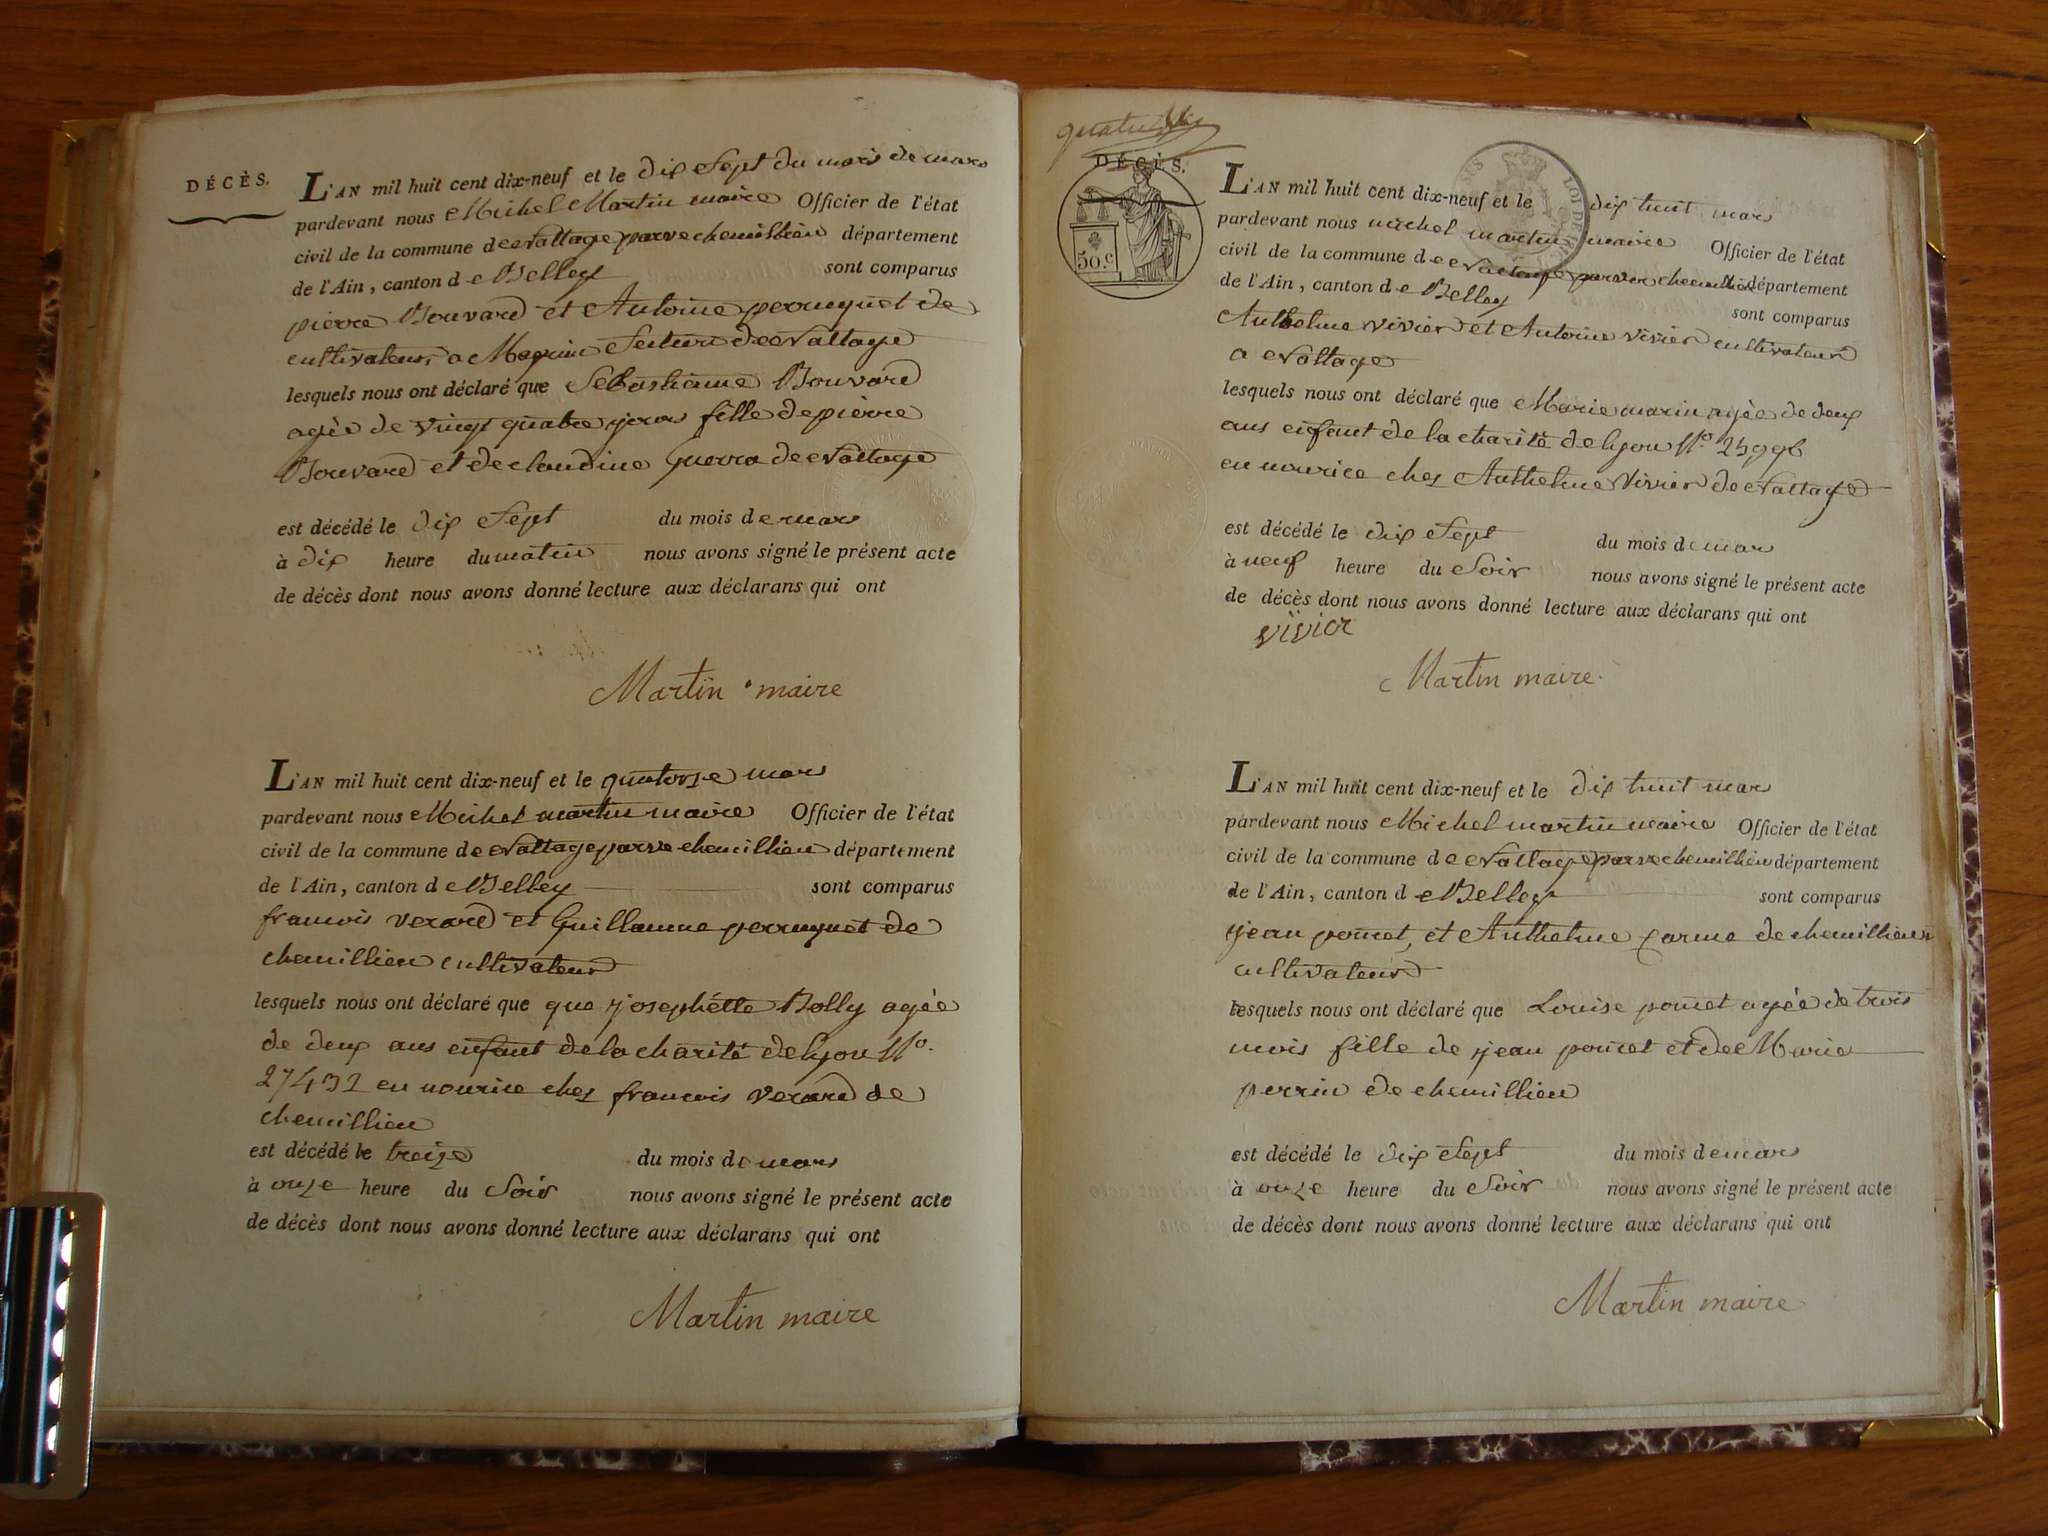 DÉCÈS.
L'AN mil huit cent dix-neuf et le dix Sept du mois de mars
pardevant nous Michel Martin maire Officier de l'état
civil de la commune de Nattage parve chemillieu département
de l'Ain, canton de Belley sont comparus
pierre Bouvard et Antoine perruquet de
cultivateurs, a Section de Nattage
lesquels nous ont déclaré que Sebastianne Bouvard
agée de vingt quatre jours fille de pierre
Bouvard et de claudine guerra de Nattage
est décédé le dix Sept du mois de mars
à dix heure du matin nous avons signé le présent acte
de décès dont nous avons donné lecture aux déclarans qui ont
Martin maire
L'AN mil huit cent dix-neuf et le quatorse mars
pardevant nous Michel martin maire Officier de l'état
civil de la commune de Nattage parve chemillieu département
de l'Ain, canton de Belley sont comparus
francois verard et Guillaume perruquet de
chemillieu cultivateurs
lesquels nous ont déclaré que que josephétte Bolly agée
de deux ans enfant de la charité de lyon No.
27432 en nourice chez francois verard de
chemillieu
est décédé le treize du mois de mars
à onze heure du Soir nous avons signé le présent acte
de décès dont nous avons donné lecture aux déclarans qui ont
Martin maire
DÉCÈS.
50.c
L'AN mil huit cent dix-neuf et le dix huit mars
pardevant nous michel martin maire Officier de l'état
civil de la commune de Nattage parve chemillieu département
de l'Ain, canton de Belley sont comparus
Anthelme vivier et Antoine vivier cultivateurs
a Nattage
lesquels nous ont déclaré que Marie marin agée de deux
ans enfant de la charité de lyon No. 25996
en nourice chez Anthelme Vivier de Nattage
est décédé le dix Sept du mois de mars
à neuf heure du Soir nous avons signé le présent acte
de décès dont nous avons donné lecture aux déclarans qui ont
vivier
Martin maire.
L'AN mil huit cent dix-neuf et le dix huit mars
pardevant nous Michel martin maire Officier de l'état
civil de la commune de Nattage parve chemillieu département
de l'Ain, canton de Belley sont comparus
jean poncet, et Anthelme carme de chemillieu
cultivateurs
lesquels nous ont déclaré que Louise poncet agée de trois
mois fille de jean poncet et de Marie
perrin de chemillieu
est décédé le dix Sept du mois de mars
à onze heure du Soir nous avons signé le présent acte
de décès dont nous avons donné lecture aux déclarans qui ont
Martin maire